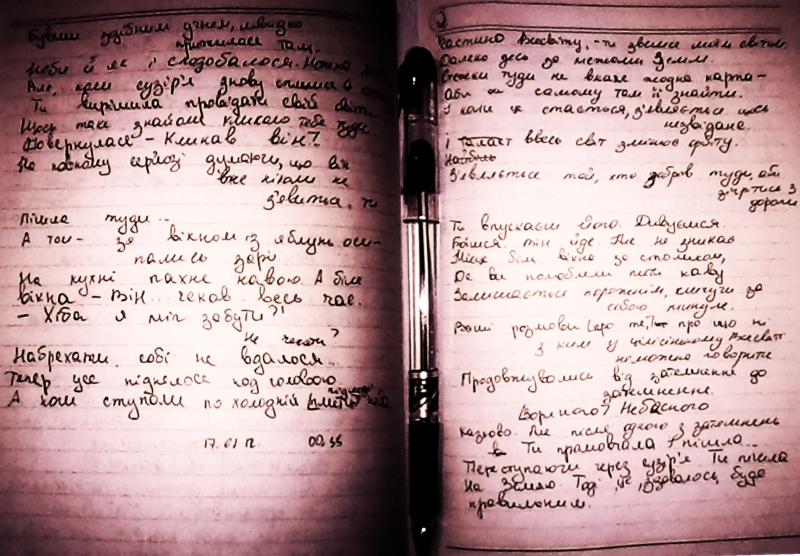 Бувши здібним учнем, швидко
прижилася там.
Небо й як і сподобалося. Можна
Але, коли сузір'я знову
Ти вирішила провідати свій світ.
Щось таки знайоме кликало тебе туди
Повернулася - Кликав він?
На повному серйозі думаючи, що він
вже ніколи не
з'явиться, ти
пішла туди...
А той - за вікном із яблунь оси-
пались зорі
На кухні пахне кавою. А біля
вікна - Він... чекав весь час.
- Хіба я міг забути?!
Не чекати?
Набрехати собі не вдалося...
Тепер усе піднялося над головою
А ноги ступали по холодній підлозі
17.01 р. 00:55
частина Всесвіту, - ти звеш моїм світом.
Далеко десь за межами Землі.
Стежки туди не вкаже жодна карта -
Аби ж самому там її знайти.
І коли це стається, з'являється щось
незвідане.
І талант ввесь світ змінює орбіту.
З'являється той, хто забрів туди, аби
зігрітися з
дороги
Ти впускаєш його. Дивуєшся.
Боїшся. Він йде. Але не зникає
Місце біля вікна за столиком,
Де ви полюбляли пити каву
Залишається порожнім, кличучи за
собою минуле.
Ваші розмови про те, про що ні
з ким у цілісінькому Всесвіті
неможливо говорити
Продовжувались від затемнення до
затемнення.
Зоряного? Небесного
казково. Але після одного з затемнень
Ти промовчала і пішла...
Переступаючи через сузір'я Ти пішла
На Землю. Тоді це здавалось буде
правильним.